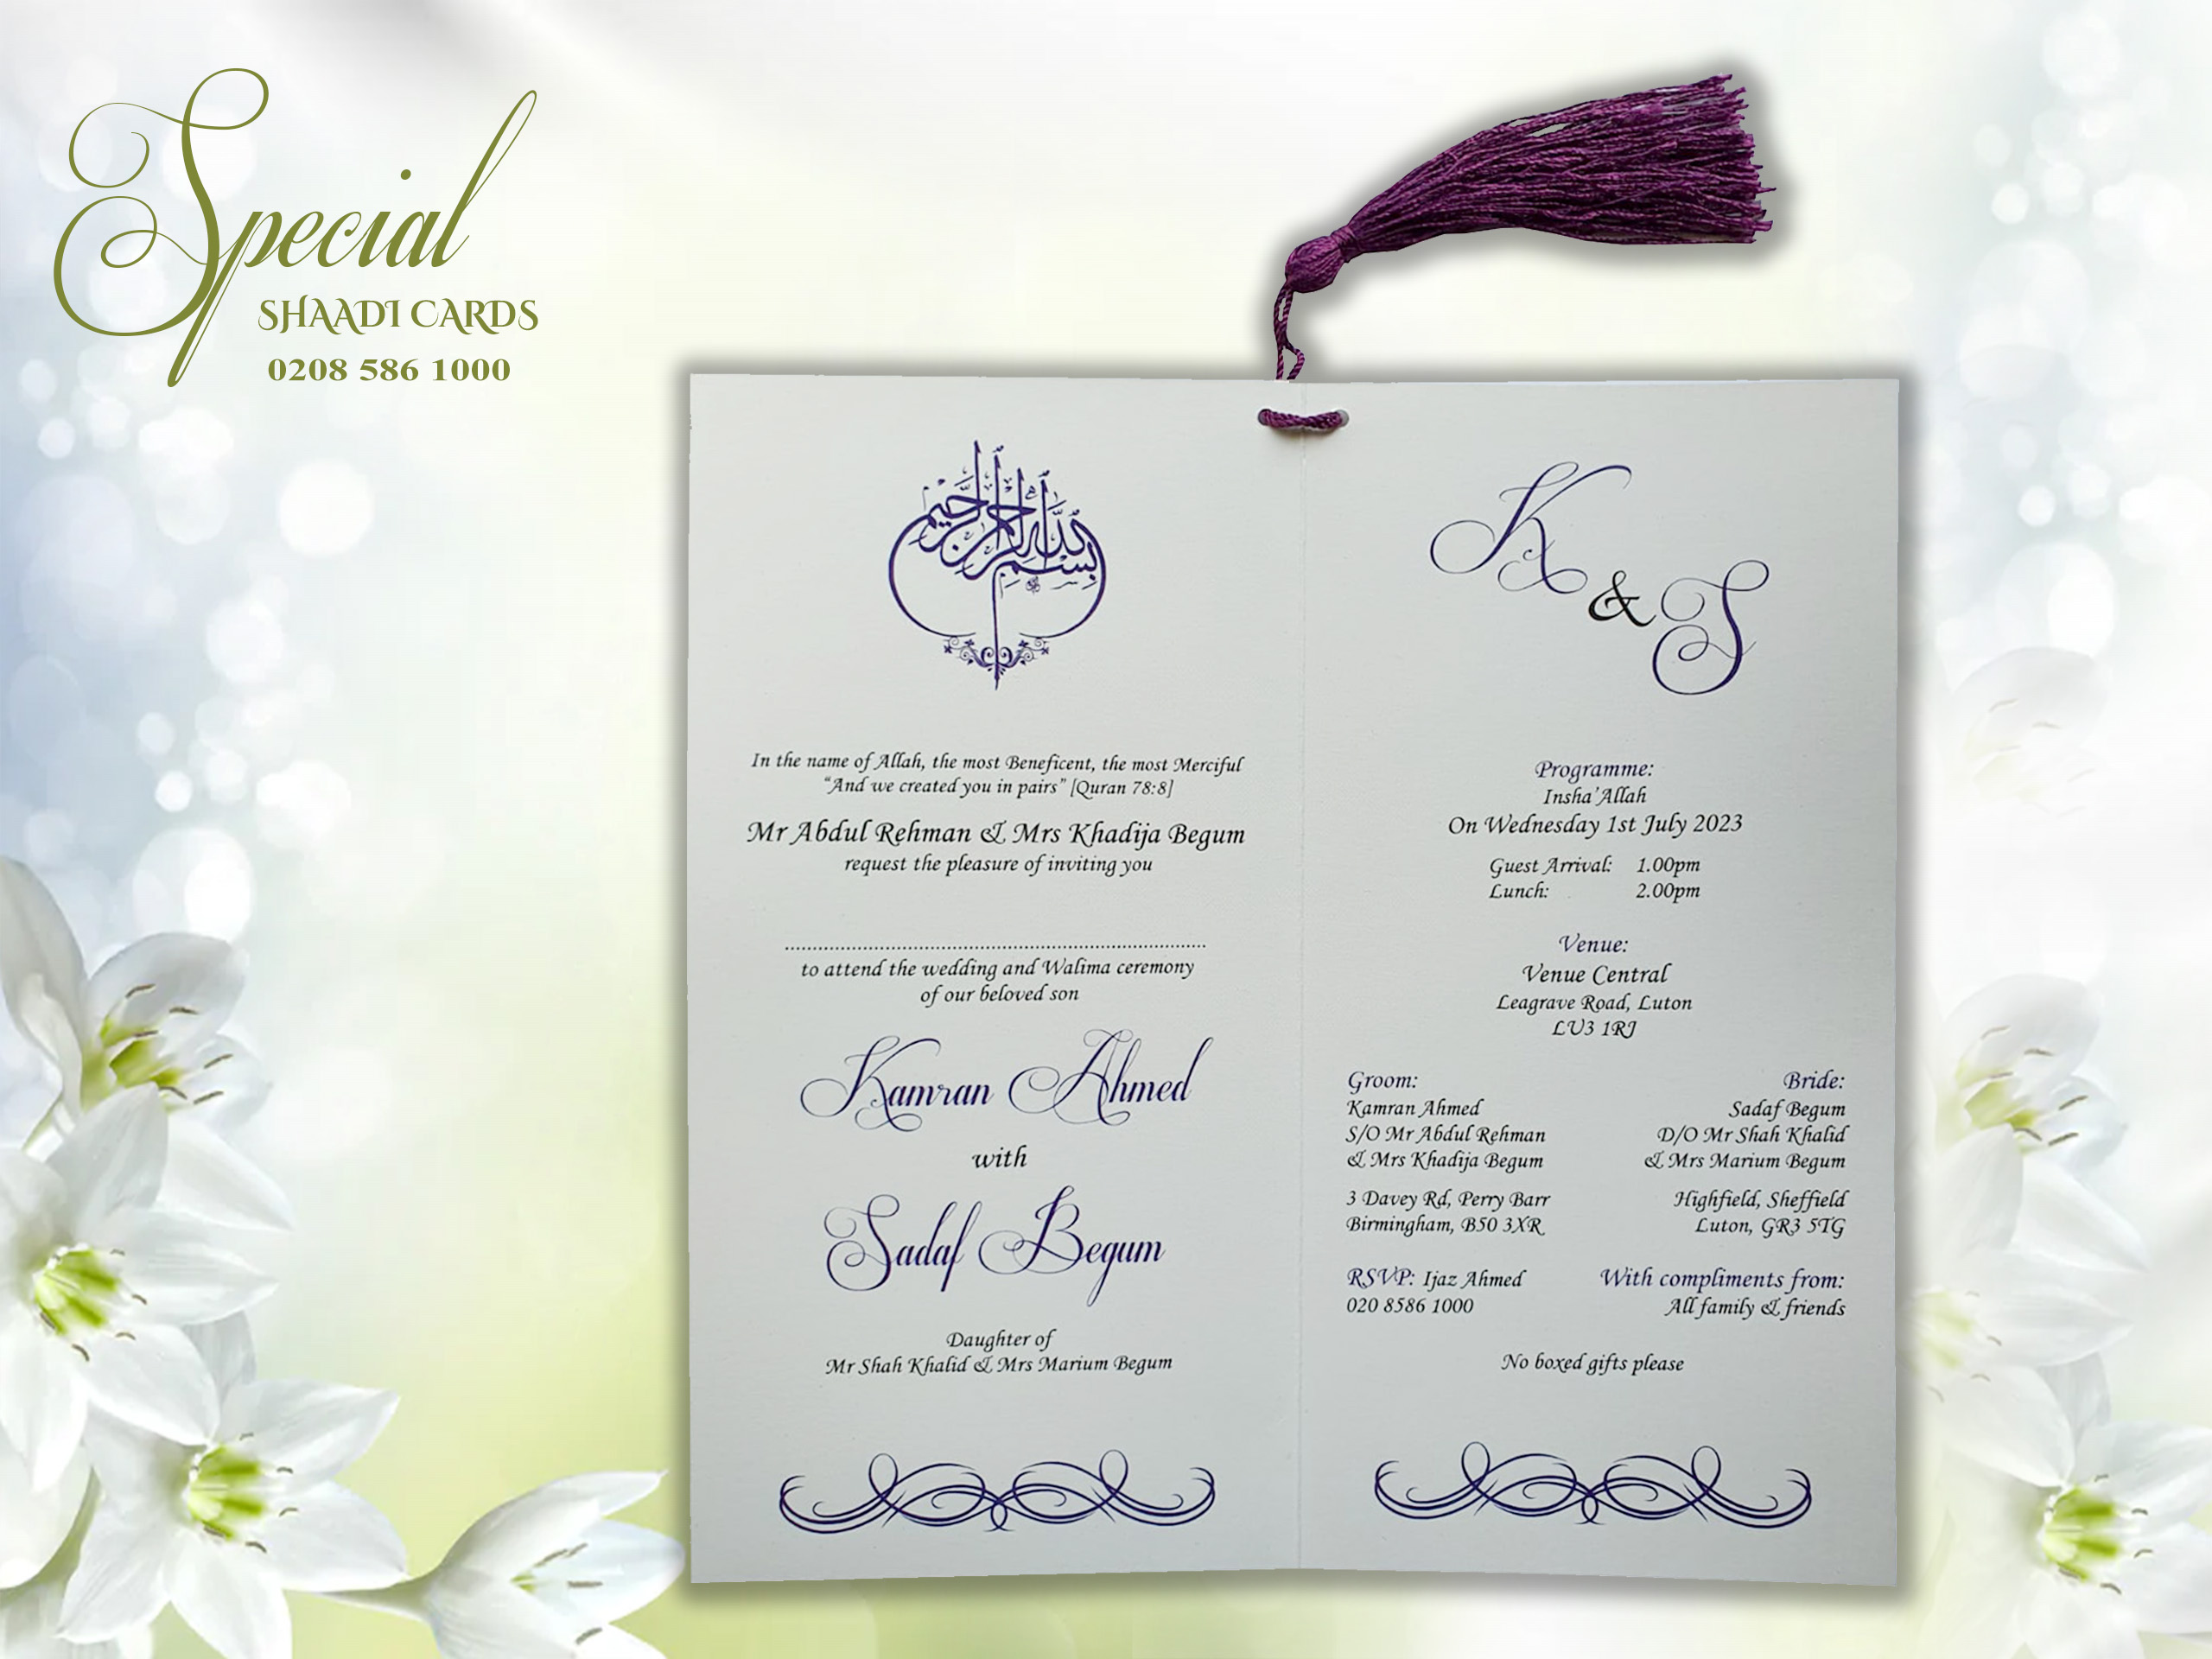 Special
SHAADI CARDS
0208 586 1000
بسم الله الرحمن الرحيم
In the name of Allah, the most Beneficent, the most Merciful
“And we created you in pairs” [Quran 78:8]
Mr Abdul Rehman & Mrs Khadija Begum
request the pleasure of inviting you
to attend the wedding and Walima ceremony
of our beloved son
Kamran Ahmed
with
Sadaf Begum
Daughter of
Mr Shah Khalid & Mrs Marium Begum
K & S
Programme:
Insha'Allah
On Wednesday 1st July 2023
Guest Arrival: 1.00pm
Lunch: 2.00pm
Venue:
Venue Central
Leagrave Road, Luton
LU3 1RJ
Groom:
Kamran Ahmed
S/O Mr Abdul Rehman
& Mrs Khadija Begum
3 Davey Rd, Perry Barr
Birmingham, B50 3XR
RSVP: Ijaz Ahmed
020 8586 1000
Bride:
Sadaf Begum
D/O Mr Shah Khalid
& Mrs Marium Begum
Highfield, Sheffield
Luton, GR3 5TG
With compliments from:
All family & friends
No boxed gifts please